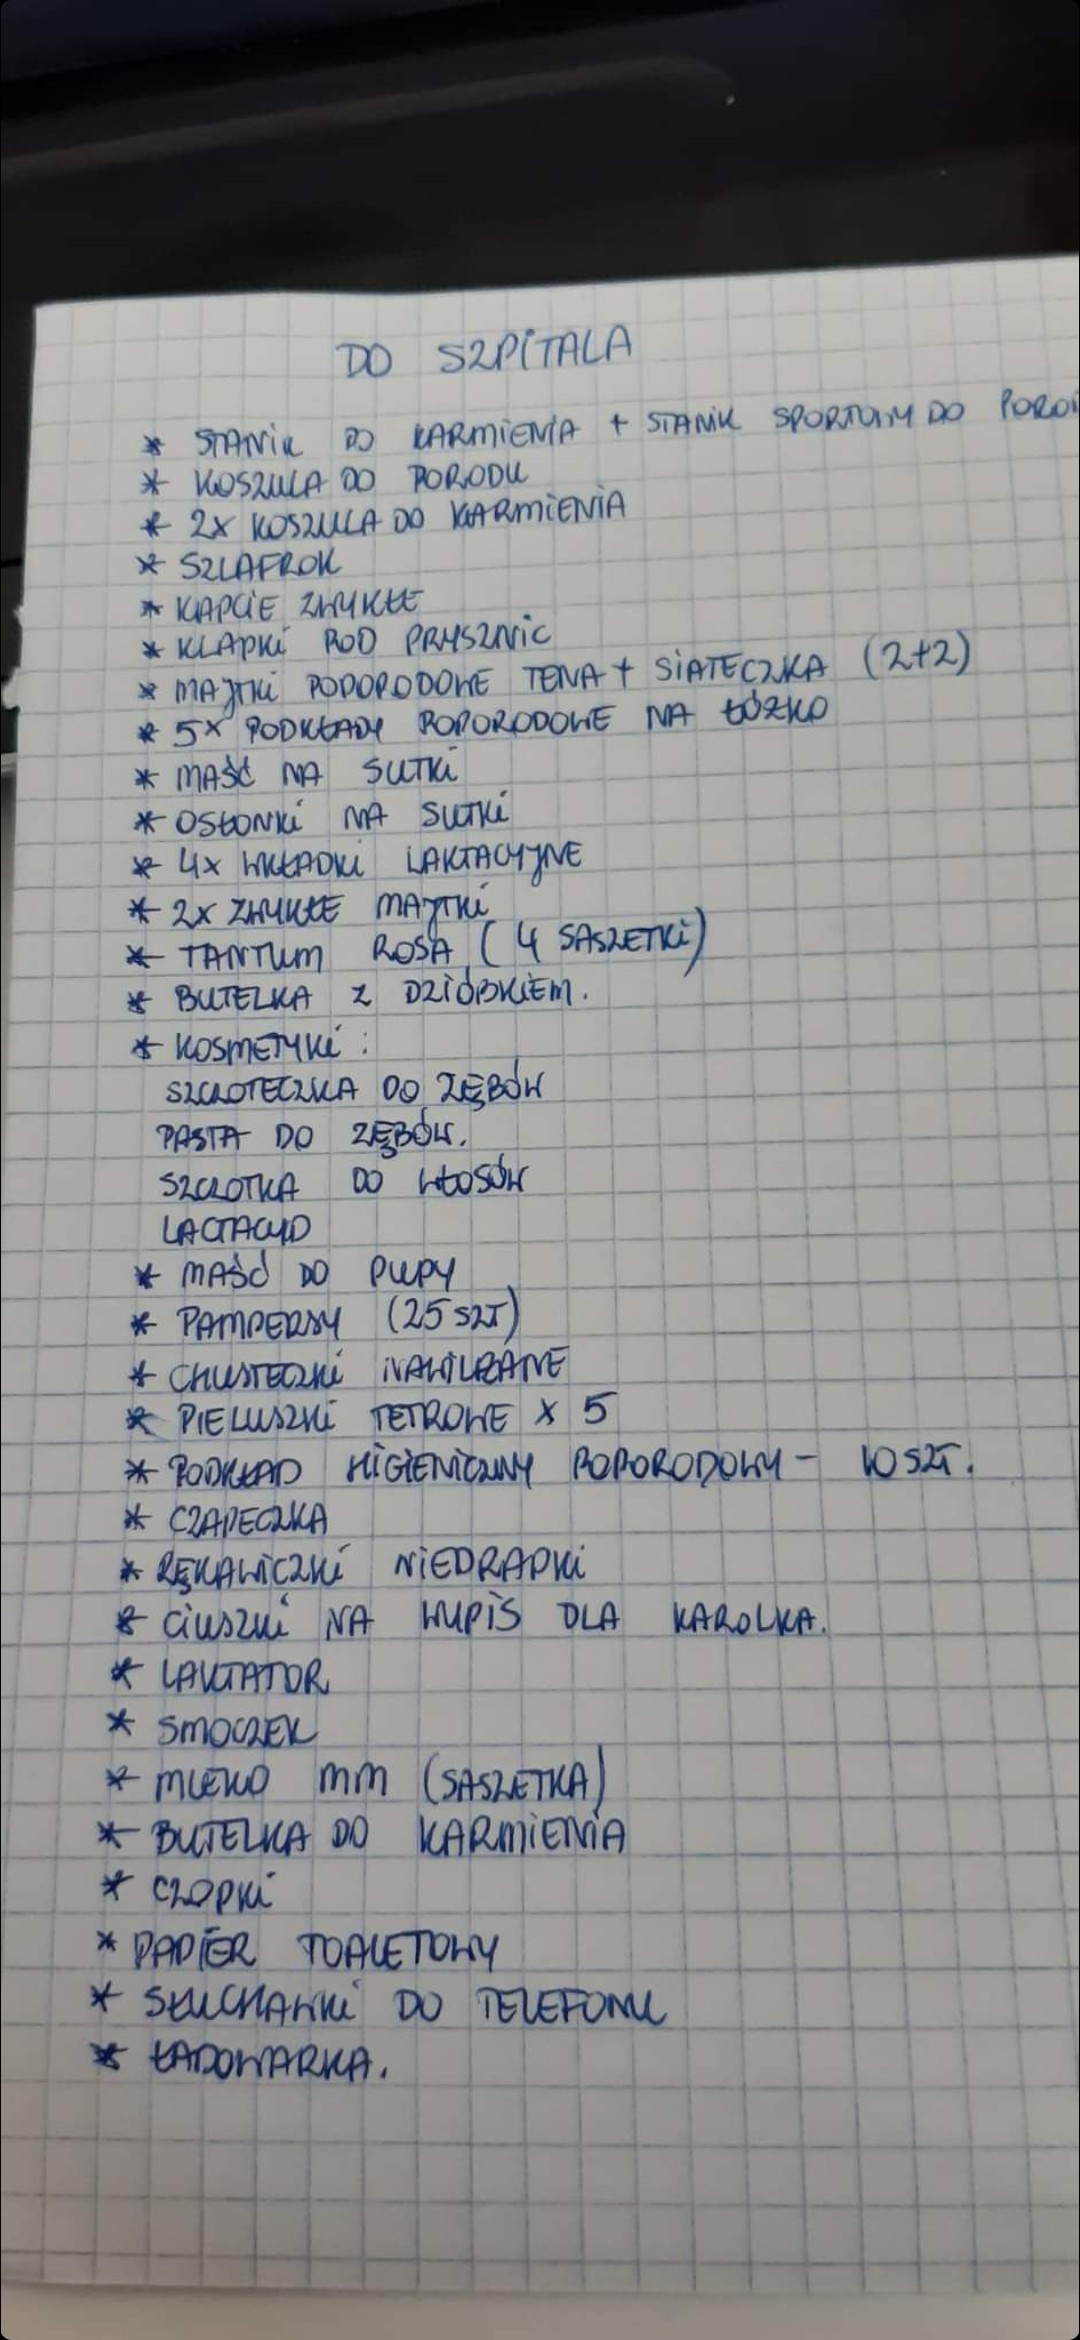 DO SZPITALA
* STANIK DO KARMIENIA + STANIK SPORTOWY DO
* KOSZULA DO PORODU
* 2X KOSZULA DO KARMIENIA
* SZLAFROK
* KAPCIE ZWYKŁE
* KLAPKI POD PRYSZNIC
* MAJTKI POPORODOWE TENA + SIATECZKA (2+2)
* 5X PODKŁADY POPORODOWE NA ŁÓŻKO
* MAŚĆ NA SUTKI
* OSŁONKI NA SUTKI
* 4X WKŁADKI LAKTACYJNE
* 2X ZWYKŁE MAJTKI
* TANTUM ROSA (4 SASZETKI)
* BUTELKA Z DZIÓBKIEM.
* KOSMETYKI :
SZCZOTECZKA DO ZĘBÓW
PASTA DO ZĘBÓW.
SZCZOTKA DO WŁOSÓW
LACTACYD
* MAŚĆ DO PUPY
* PAMPERSY (25 SZT)
* CHUSTECZKI NAWILŻANE
* PIELUSZKI TETROWE X 5
* PODKŁAD HIGIENICZNY POPORODOWY - 10 SZT.
* CZAPECZKA
* RĘKAWICZKI NIEDRAPKI
* CIUSZKI NA WYPIS DLA KAROLKA.
* LAKTATOR
* SMOCZEK
* MLEKO MM (SASZETKA)
* BUTELKA DO KARMIENIA
* CZOPKI
* PAPIER TOALETOWY
* SŁUCHAWKI DO TELEFONU
* ŁADOWARKA.